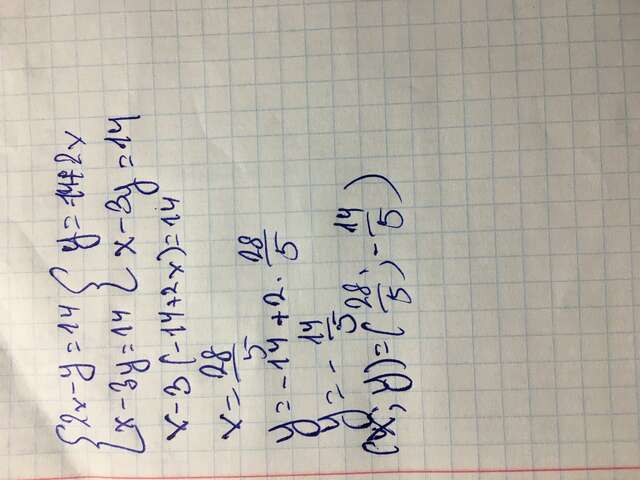 {2x-y=14 { y=-14+2x
{x-3y=14 { x-3y=14
x-3(-14+2x)=14
x=28/5
y=-14+2·28/5
y=-14/5
(x; y)=(28/5, -14/5)